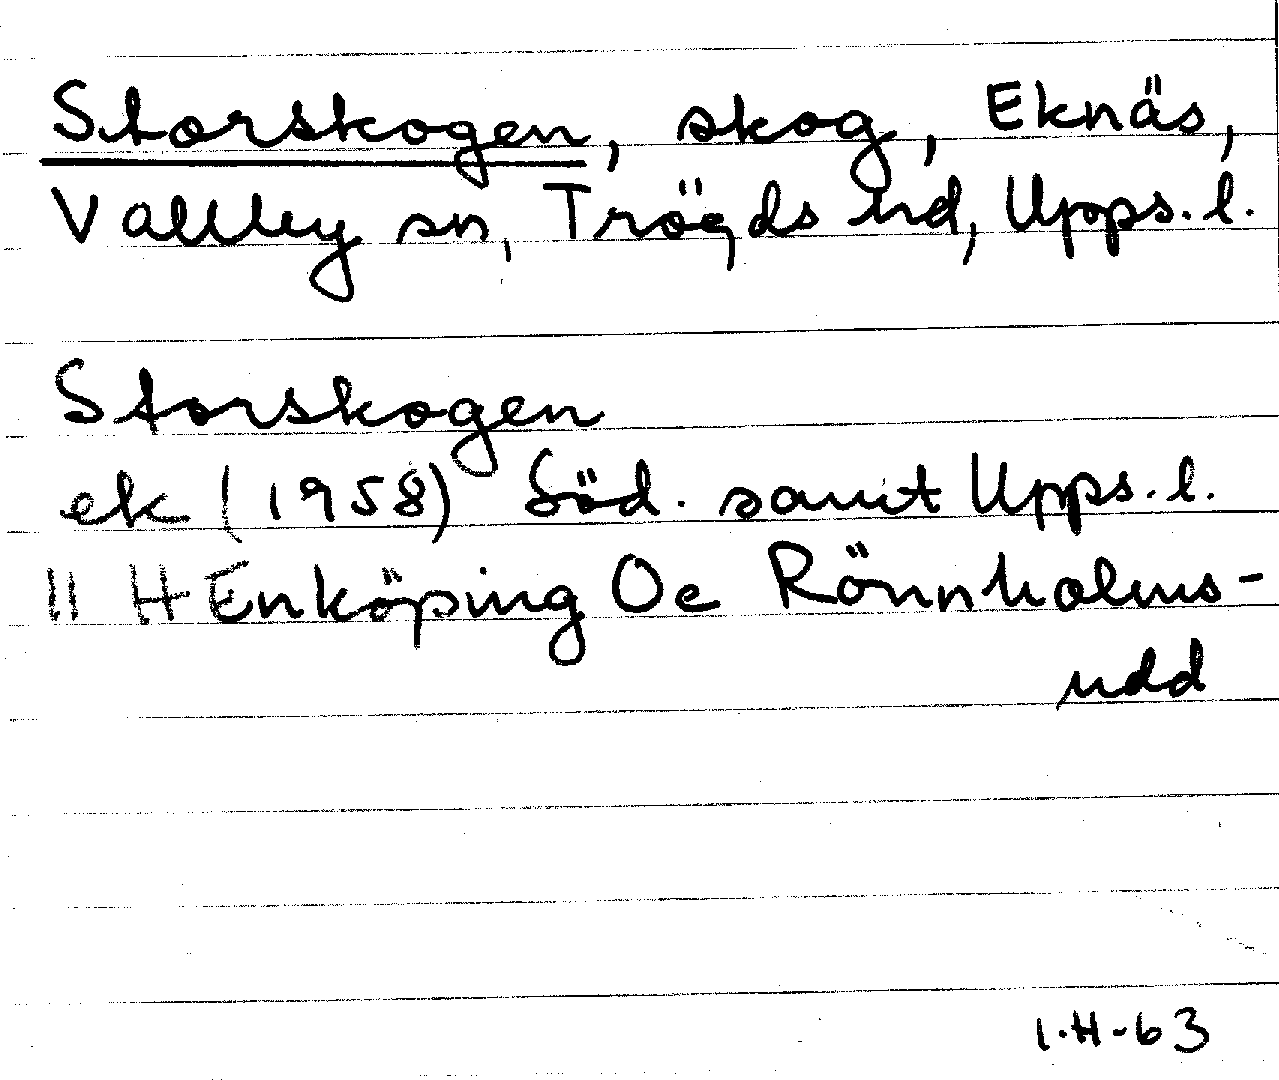 Storskogen, skog, Eknäs,
Vallby sn, Trögds hd, Upps. l.
Storskogen
ek (1958) Söd. samt Upps. l.
11 H Enköping Oe Rönnholms-
udd
I.H-63